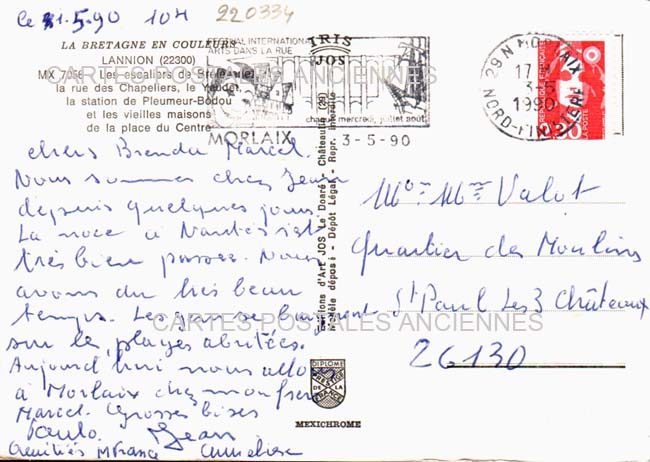 le 31.5.90 10H 220334
LA BRETAGNE EN COULEURS
LANNION (22300)
MX 7058 Les escaliers de Brélévenez
la rue des Chapeliers, le Yaudet,
la station de Pleumeur-Bodou
et les vieilles maisons
de la place du Centre
FESTIVAL INTERNATIONAL
ARTS DANS LA RUE
chaque mercredi, juillet août
MORLAIX 3-5-90
29 N MORLAIX
17 H
3-5
1990
NORD-FINISTERE
IRIS
JOS
Editions d'Art JOS Le Doaré - Châteaulin (29)
Modèle déposé - Dépôt Légal - Repr. interdite
chers Brenda Marcel.
Nous sommes chez Jean
depuis quelques jours
La noce à Nantes s'est
très bien passée. Nous
avons du très beau
temps. Les gens se baignent
sur les plages abritées.
Aujourd'hui nous allons
à Morlaix chez mon frère
Marcel. Grosses bises
Paulo. Jean
Amitiés M France Anneliese
Mr Mme Valot
Quartier des Moulins
St Paul Les 3 Châteaux
26130
DIPLOME
PRESTIGE
DE LA
FRANCE
MEXICHROME
CARTES POSTALES ANCIENNES
CARTES POSTALES ANCIENNES